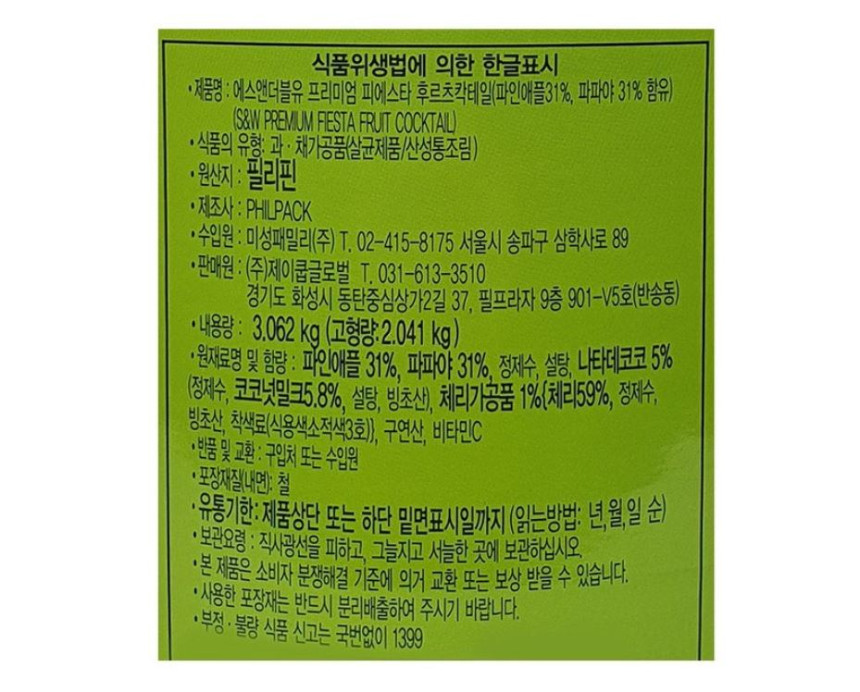 식품위생법에 의한 한글표시
• 제품명 : 에스앤더블유 프리미엄 피에스타 후르츠칵테일(파인애플31%, 파파야 31% 함유)
(S&W PREMIUM FIESTA FRUIT COCKTAIL)
• 식품의 유형: 과 · 채가공품(살균제품/산성통조림)
• 원산지 : 필리핀
• 제조사 : PHILPACK
• 수입원 : 미성패밀리(주) T. 02-415-8175 서울시 송파구 삼학사로 89
• 판매원 : (주)제이쿱글로벌 T. 031-613-3510
경기도 화성시 동탄중심상가2길 37, 필프라자 9층 901-V5호(반송동)
• 내용량 : 3.062 kg (고형량:2.041 kg)
• 원재료명 및 함량 : 파인애플 31%, 파파야 31%, 정제수, 설탕, 나타데코코 5%
(정제수, 코코넛밀크5.8%, 설탕, 빙초산), 체리가공품 1%{체리59%, 정제수,
빙초산, 착색료(식용색소적색3호)}, 구연산, 비타민C
• 반품 및 교환 : 구입처 또는 수입원
• 포장재질(내면): 철
• 유통기한: 제품상단 또는 하단 밑면표시일까지 (읽는방법: 년,월,일 순)
• 보관요령 : 직사광선을 피하고, 그늘지고 서늘한 곳에 보관하십시오.
• 본 제품은 소비자 분쟁해결 기준에 의거 교환 또는 보상 받을 수 있습니다.
• 사용한 포장재는 반드시 분리배출하여 주시기 바랍니다.
• 부정 · 불량 식품 신고는 국번없이 1399